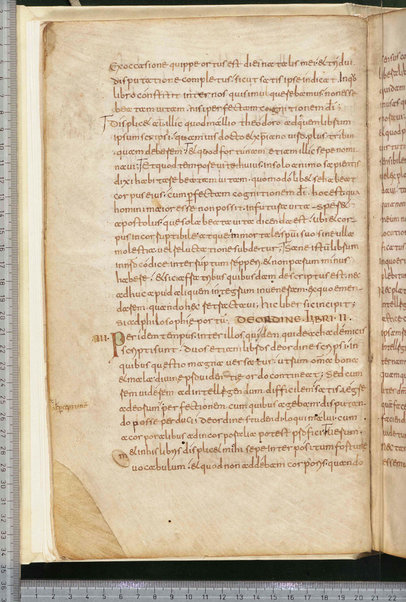 Ex occasione quippe ortus est diei natalis mei et tridui
disputatione completus, sicut satis ipse indicat. In quo
libro constitit inter nos qui simul quaerebamus non esse
beatam uitam, nisi perfectam cognitionem dī;
Displicet illic quod mallio theodoro ad quem librum
ipsum scripsi, quamuis docto et xp̄iano uiro, plus tribui
quam deberem; Et quod fortunam etiam illic sepe nomi
naui; Et quod tempore uitae huius in solo animo sapientis
dixi habitare beatam uitam, quomodolibet se habeat
corpus eius; cum perfectam cognitionem dī. hoc est qua
homini maior esse non possit. in futura uita. speret
apostolus, quae sola beata uita dicenda est. ubi et cor
pus incorruptibile atque inmortale spiritui suo sine ulla
molestia uel reluctatione subdetur; Sane istum librum
in nostro codice interruptum repperi, et non parum minus
habere; et sic a fratribus quibusdam descriptus est, nec
adhuc apud aliquem integrum inueneram, ex quo emen
darem, quando hęc retractaui, hic liber sic incipit;
si ad philosophiae portū; DE ORDINE LIBRI II.
III. Per idem tempus inter illos quidem qui de achademicis
scripti sunt. duos etiam libros de ordine scripsi. In
quibus questio magna uersatur. utrum omnia bona
et mala diuinę prouidentiae ordo contineat; Sed cum
rem uiderem ad intellegendum difficilem satis aegre
ad eorum perceptionem. cum quibus agebam disputan
do posse perduci. de ordine studendi loqui malui. quo
a corporalibus ad incorporalia potest profici; Verum
et in his libris displicet mihi sepe interpositum fortune
uocabulum. et quod non addebam corporis, quando